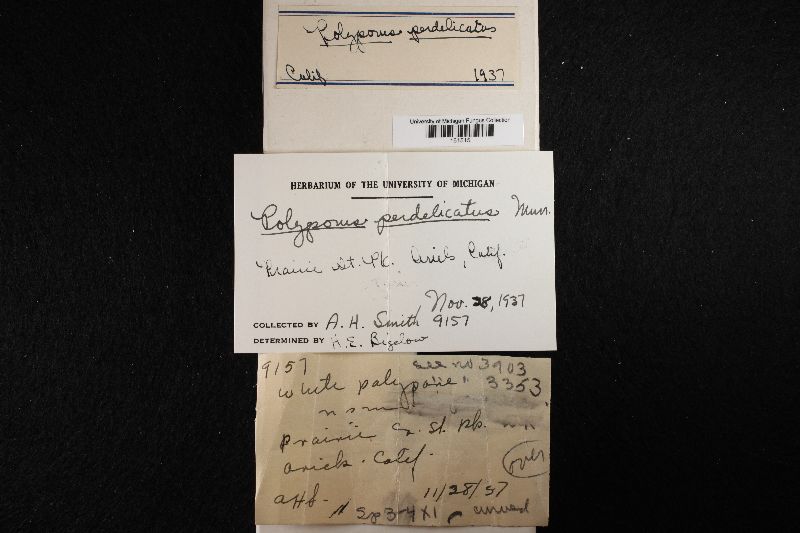 Polyporus perdelicatus
Calif 1937
University of Michigan Fungus Collection
HERBARIUM OF THE UNIVERSITY OF MICHIGAN
Polyporus perdelicatus Murr.
Prairie St. Pk. Orick, Calif.
Nov. 28, 1937
COLLECTED BY A. H. Smith 9157
DETERMINED BY H.E. Bigelow
9157 see no 3903
white polypore " 3353
n s m
prairie Cr. St. Pk.
orick. Calif.
over
AHS- 11/28/37
Sp 3-4 X 1 curved